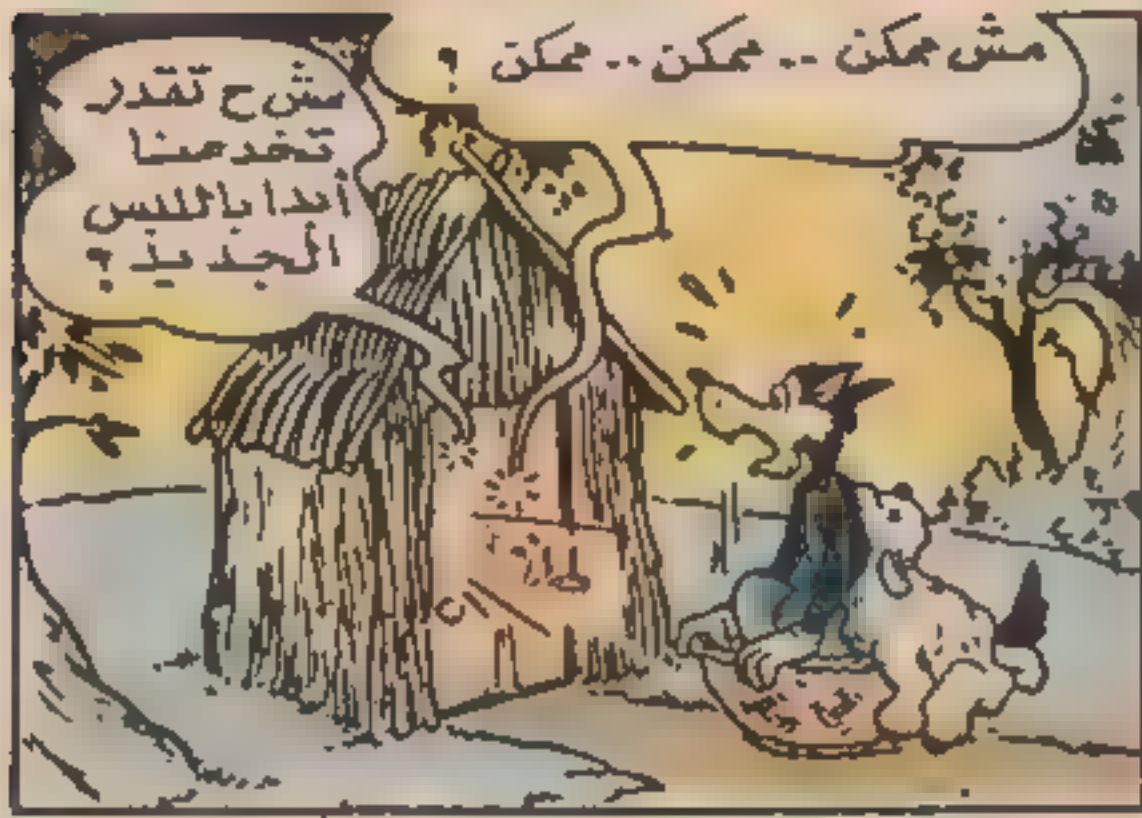 مش ممكن .. ممكن .. ممكن ؟
مش ح تقدر
تخدعنا
أبدا باللبس
الجديد ؟